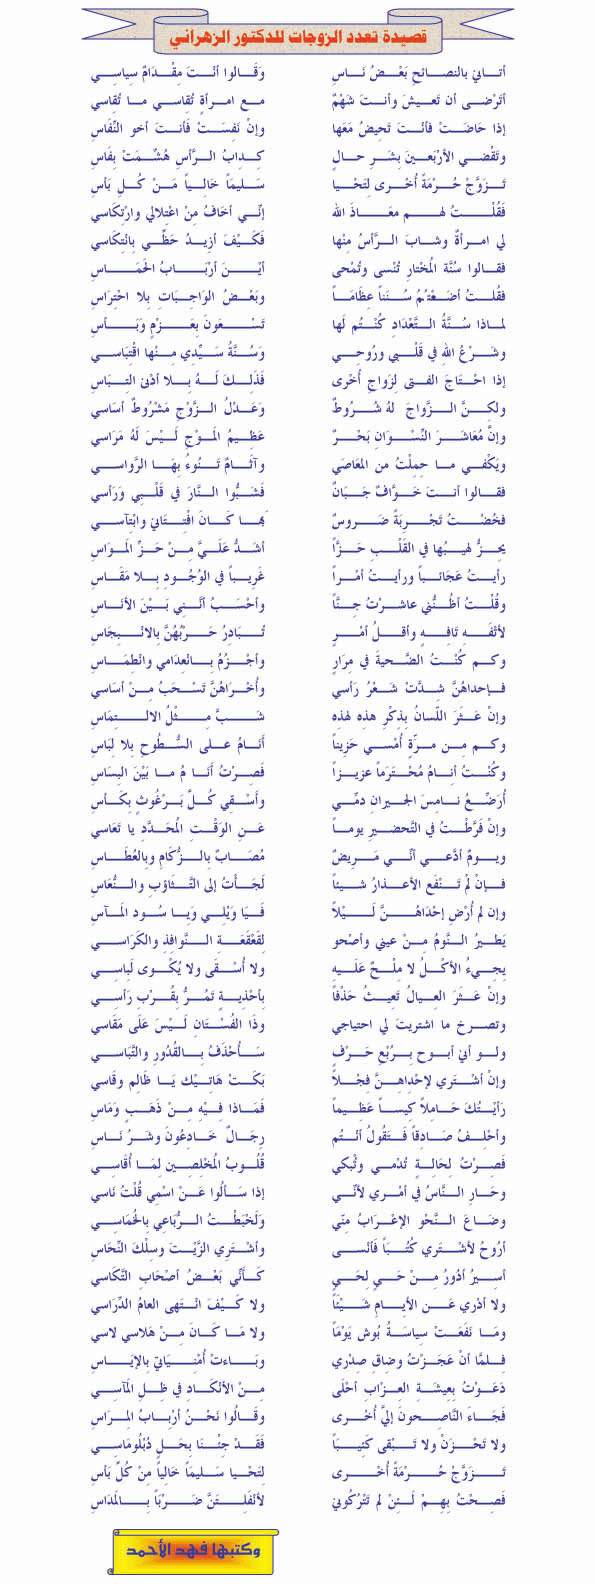 قصيدة تعدد الزوجات للدكتور الزهراني
أتـاني بالنصـائحِ بَعْـضُ نَـاسِ وَقَـالوا أنْـتَ مِقْـدَامٌ سِياسِـي
أتَرْضَـى أن تَعـيشَ وأنـتَ شَهْمٌ مـع امـرأةٍ تُقـاسي مـا تُقـاسي
إذا حَاضَـتْ فأنْـتَ تَحيضُ مَعَها وإنْ نَفِسَـتْ فَأنـتَ أخو النِّفَاسِ
وتَقْضي الأرْبَعـينَ بِشَـرِ حـالٍ كـدابُ الـرَّأسِ هُشِّمَـتْ بِفَاسِ
تَـزَوَّجْ حُـرْمَةً أُخْـرى لِتَحْيـا سَـليمًا خَاليـاً مَـنْ كُـلِ بَأسِ
فَقُلْـتُ لهـم معَـاذَ الله إنّـي أخَافُ مِنْ اعْتلالي وارْتِكَاسي
لي امـرأةٌ وشـابَ الـرَّأسُ مِنْها فَكَـيْفَ أزيـدُ حَظِّـي بِانْتِكَاسي
فقـالوا سُنَّة المُخْتارِ تُنْسى وتُمْحى أيْـنَ أرْبَـابُ الحَمَـاسِ
فقُلـتُ أضَعْتُـمُ سُـنَناً عِظَامَـاً وبَعْـضُ الوَاجِبَاتِ بِلا احْتِراسِ
لماذا سُـنَّةُ التَّعْدَادِ كُنْتُـم لَها تَسْـعَونَ بِعَـزْمٍ وَبَـأسِ
وشَـرْعُ اللهِ في قَلْـبي ورُوحِـي وَسُـنَّةُ سَـيِّدي مِـنْها اقْتِبَاسـي
إذا احْتَـاجَ الفـتى لِزَواجِ أُخْرى فَذَلِـكَ لَـهُ بِـلا أدْنى التِـبَاسِ
ولكِـنَّ الـزَّواجَ لهُ شُـرُوطٌ وَعَـدْلُ الـزَّوْجِ مَشْرُوطٌ أسَاسي
وإنَّ مُعَاشَـرَ النِّسْـوَانِ بَحْـرٌ عَظِيمُ المَـوْجِ لَـيْسَ لَهُ مَرَاسي
ويَكْفـي مـا حمِلْـتُ من المعَاصَي وآثَـامٌ تَـنُوءُ بِهَـا الـرَّواسـي
فقـالوا أنـتَ خَـوَّافٌ جَـبَانٌ فَشَـبُّوا النَّـارَ في قَلْـبي وَرَأسي
فخُضْـتُ تَجْـرِبَةً ضَـرُوسٌ بِهَـا كَـانَ افْتِـتَاني وابْتِآسـي
يحِـزُّ لهيـبُها في القَلْـبِ حَـزًّا أشَدُّ عَلَـيَّ مِـنْ حَـزِّ المـوَاسِ
رأيـتُ عَجَائـبَاً ورَأيـتُ أمْـرَاً غَرِيبـاً في الوُجُـودِ بِـلا مَقَـاسِ
وقُلْـتُ أظُـنُّني عاشَرْتُ جِنًّـا وأحْسَـبُ أنَّـنِي بَيْـنَ الأنَـاسِ
لأتْفَـهِ تَافِـهٍ وأقَـلُّ أمْـرٍ تُـبَادِرُ حَـرْبُهُنَّ بالانْـبِجَاسِ
وكـم كُنْـتُ الضَّحيةَ في مِرَارٍ وأجْـزِمُ بـانْعِدَامي وانْطِمَـاسِ
فـإحداهُنَّ شِـدَّتْ شَعْـرُ رَأسي وأُخْـرَاهُنَّ تَسْـحَبُ مِـنْ أسَاسي
وإنْ عَـثَرَ اللِّسانُ بِذِكْرِ هذِه لهذِه شَـبَّ مِـثْلُ الالـتِمَاسِ
وكـم مـن مـرَّةٍ أُمْسـي حَزِيناً أنَـامُ عـلى السُّـطُوحِ بِلا لِبَاسِ
وكُنْـتُ أنـامُ مُحْـتَرَماً عزيـزا فَصِـرْتُ أنَـامُ ما بَيْنَ البِسَاسِ
أُرَضِّـعُ نـامِسَ الجـيرانِ دمِّـي وأَسْـقِي كُـلَّ بَـرْغُوثٍ بِكَـأسِ
وإنْ فَرَّطْـتُ في التَّحضيرِ يومـاً عَـنِ الوَقْـتِ المُحَدَّدِ يا تَعَاسي
ويـومٌ أدَّعـي أنّـي مَـرِيضٌ مُصَـابٌ بالـزُّكَامِ وبالعُطَـاسِ
فـإنْ لَمْ تَـنْفَعِ الأعـذَارُ شـيئاً لَجَـأتُ إلى التَّـثَاؤبِ والنُّعَاسِ
وإن لم أُرْضِ إحْدَاهُـنَّ لَـيْلاً فَـيَا وَيْلِـي وَيَـا سُـود المـآسِ
يَطيرُ النَّومُ مِـنْ عيني وأصْحو لِقَعْقَعَـةِ الـنَّوَافِذِ والكَرَاسـي
يجيءُ الأكْـلُ لا مِلْـحٌ عَلَـيهِ ولا أُسْـقَى ولا يُكْـوى لَباسِـي
وإنْ عَـثَرَ العِـيالُ تَعيثُ حَذْفاً بأحْذيـةٍ تَمُـرُّ بِقُـرْبِ رَأسِـي
وتصـرخ ما اشتريتَ لي احتياجي وذَا الفُسْـتَانِ لَـيْسَ عَلَى مَقَاسي
ولـو أنيَ أبـوح بـرُبْعِ حَـرْفٍ سَـأُحْذَفُ بـالقُدُورِ والتَّبَاسـي
وإنْ أشْتَرِي لإحْداهِـنَّ فِجْـلاً بَكَـتْ هَاتِيْـكَ يَـا ظَالِم وقَاسي
رَأيْـتُكَ حَامِـلاً كيسـاً عَظيماً فَمَـاذا فِـيْهِ مِـنْ ذَهَـبٍ وَمَاسِ
وأحْلِـفُ صَـادِقاً فَـتَقُولُ أنْتُم رِجَـالٌ خَـادِعُونَ وشَـرُ نَـاسِ
فَصِـرْتُ لِحَالـةٍ تُدْمـي وتُبكي قُلُـوبُ المُخْلِصـين لِمَـا أُقَاسـي
وحَـارَ النَّـاسُ في أمْرِي لأنّـي إذا سَـألُوا عَـنْ اسْمِي قُلْتُ نَاسي
وضَـاعَ النَّحْوُ الإعْرَابُ مِنّـي وَلَخْبَطْـتُ الـرُّبَاعي بالخُمَاسـي
أرُوحُ لأشْـتَري كُتُـبَاً فَأنْسـى وأشْـتَرِي الزَّيْـتَ وسِلْكَ النِّحَاسِ
أسِـيرُ أدُورُ مِـنْ حَـيٍ لِحَـيٍ كَـأنِّي بَعْـضُ أصْحَابِ التَّكَاسي
ولا أدْرِي عَـنِ الأيـامِ شَـيْئاً ولا كَـيْفَ انْـتَهى العَامُ الدِّرَاسي
ومَـا نَفَعَـتْ سِيَاسَـةُ بُوش يَوْمَاً ولا مَـا كَـانَ مِـنْ هَلاسي لاسي
فَلمَّـا أنْ عَجَـزْتُ وضَاقِ صدْرِي وَبَـاءتْ أُمْنِـيَاتيَ بالإيَـاسِ
دَعَـوْتُ بِعيشَـةِ العـزَّابِ أحْلَى مِـنْ الأنْكَـادِ في ظِـلِ المآسِـي
فَجَـاءَ النَّاصِـحُونَ إليَّ أُخْـرى وقَـالُوا نَحْـنُ أرْبَـابُ المِـرَاسِ
ولا تَحْـزَنْ ولا تَـبْقى كَئِيـبَاً فَقَـدْ جِئْـنَا بِحَـلٍ دُبْلُومَاسـي
تَـزَوَّجْ حُـرْمَةً أُخْـرى لِتَحْـيا سَـليمَاً خَالياً مِنْ كُلِّ بَأسِ
فَصِحْـتُ بِهِـمْ لَـئِنْ لم تَتْرُكُونيَ لأنْفَلِـتَنَّ ضَـرْبَاً بـالْمَدَاسِ
وكتبها فهد الأحمد